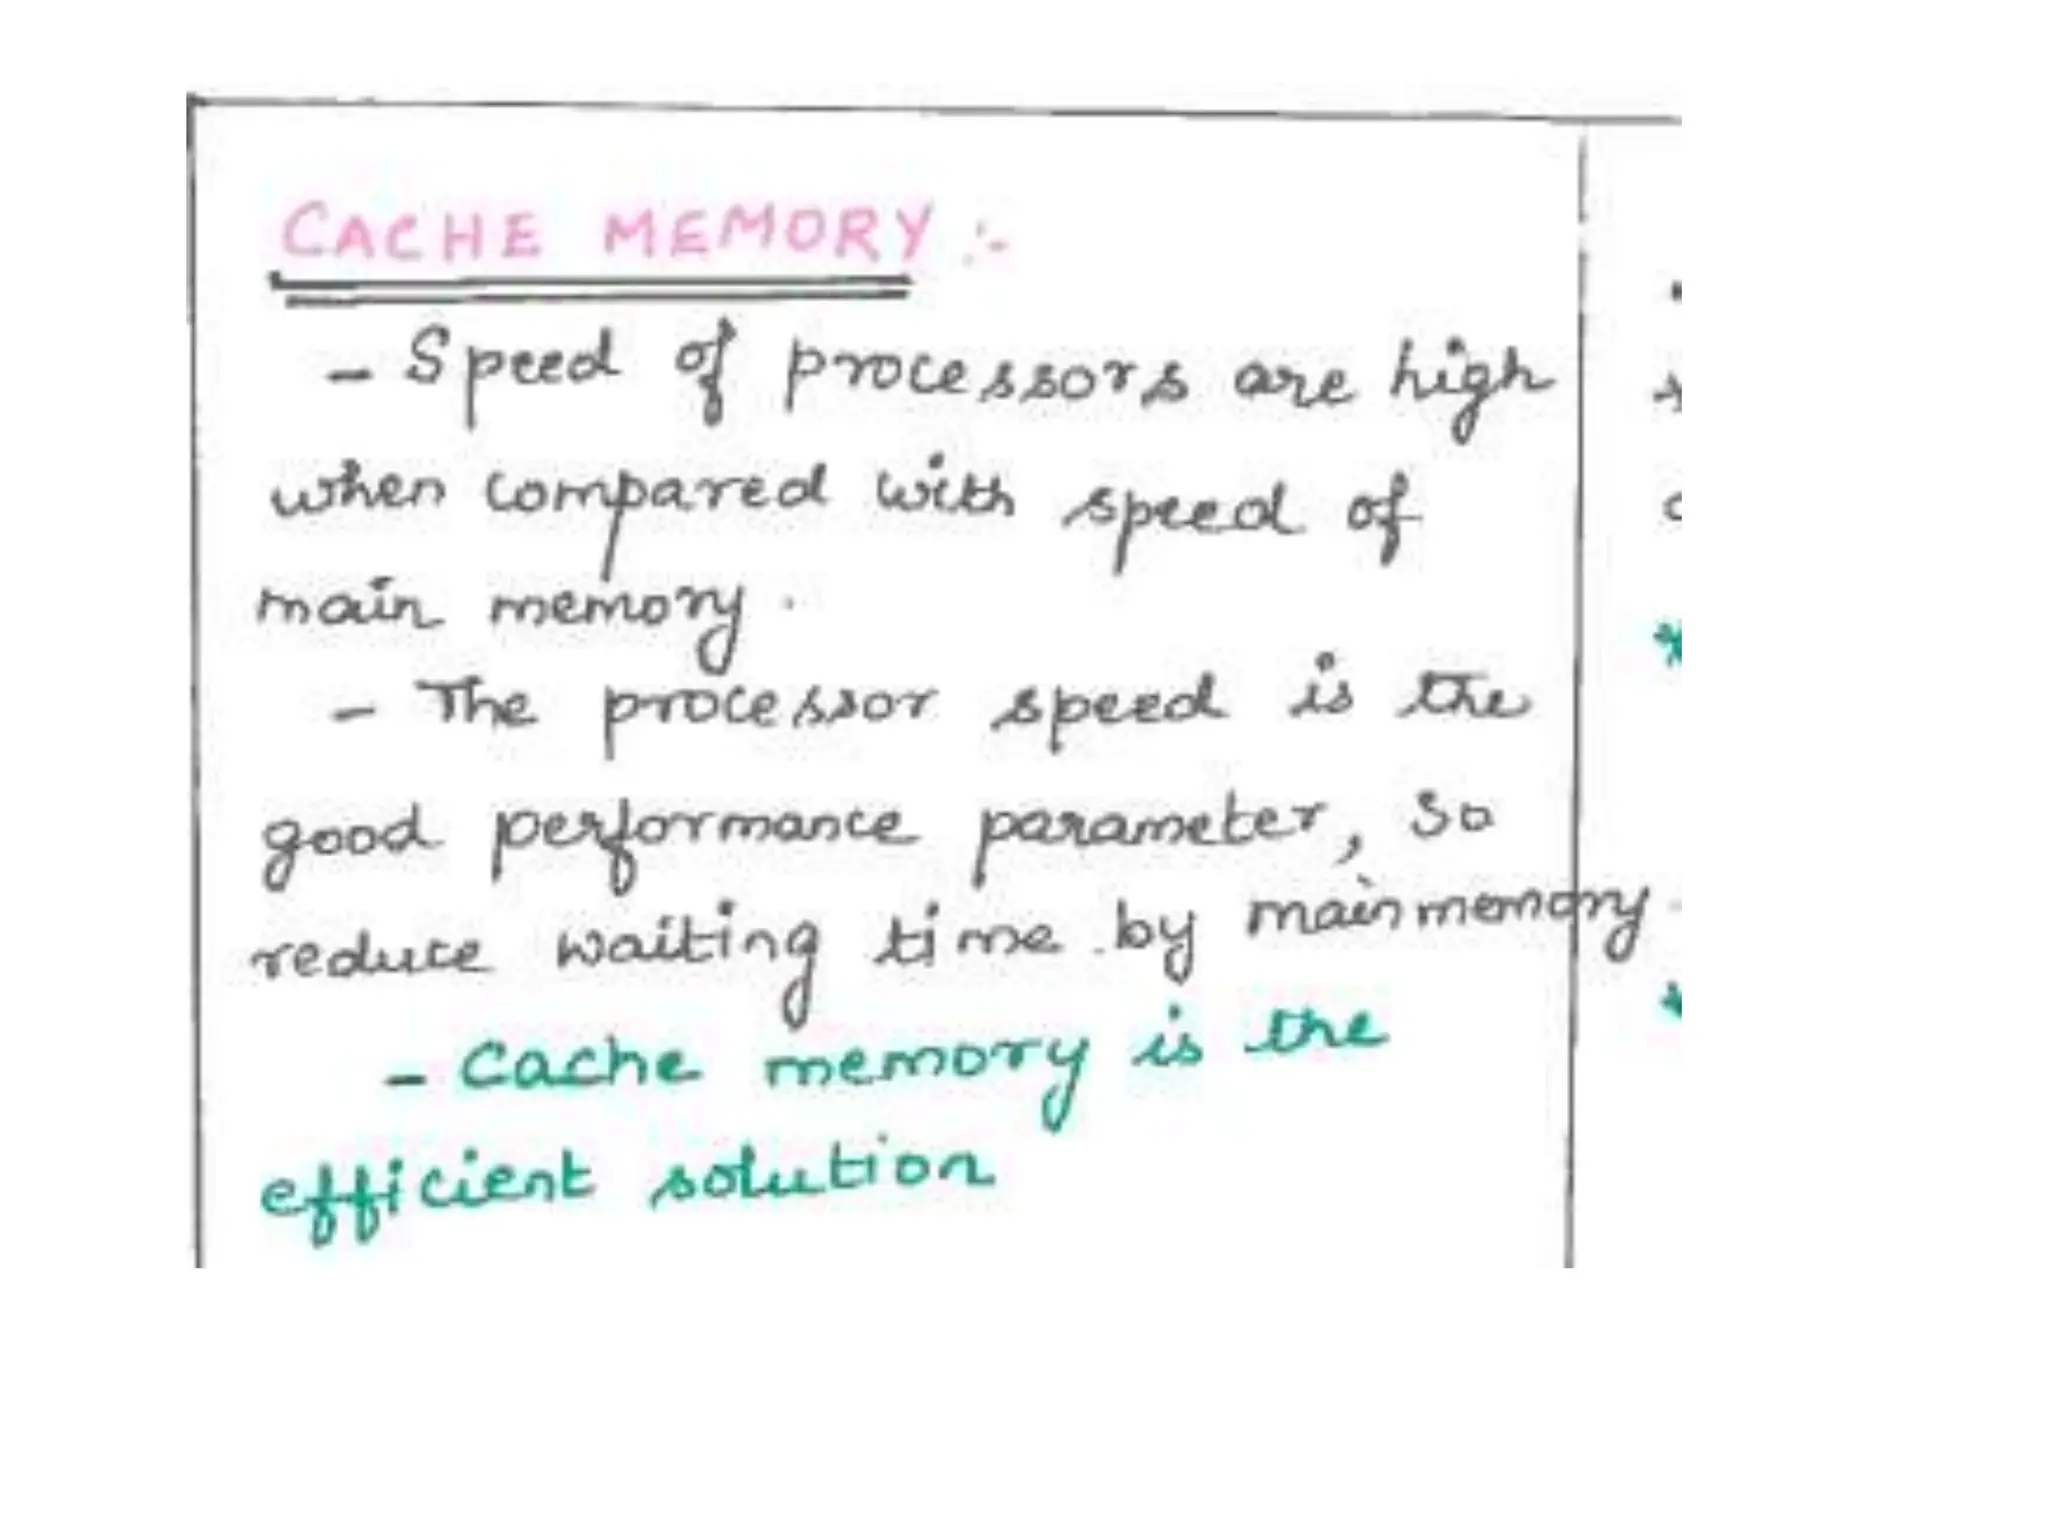 CACHE MEMORY :-
- Speed of processors are high
when compared with speed of
main memory.
- The processor speed is the
good performance parameter, so
reduce waiting time by main memory.
- Cache memory is the
efficient solution